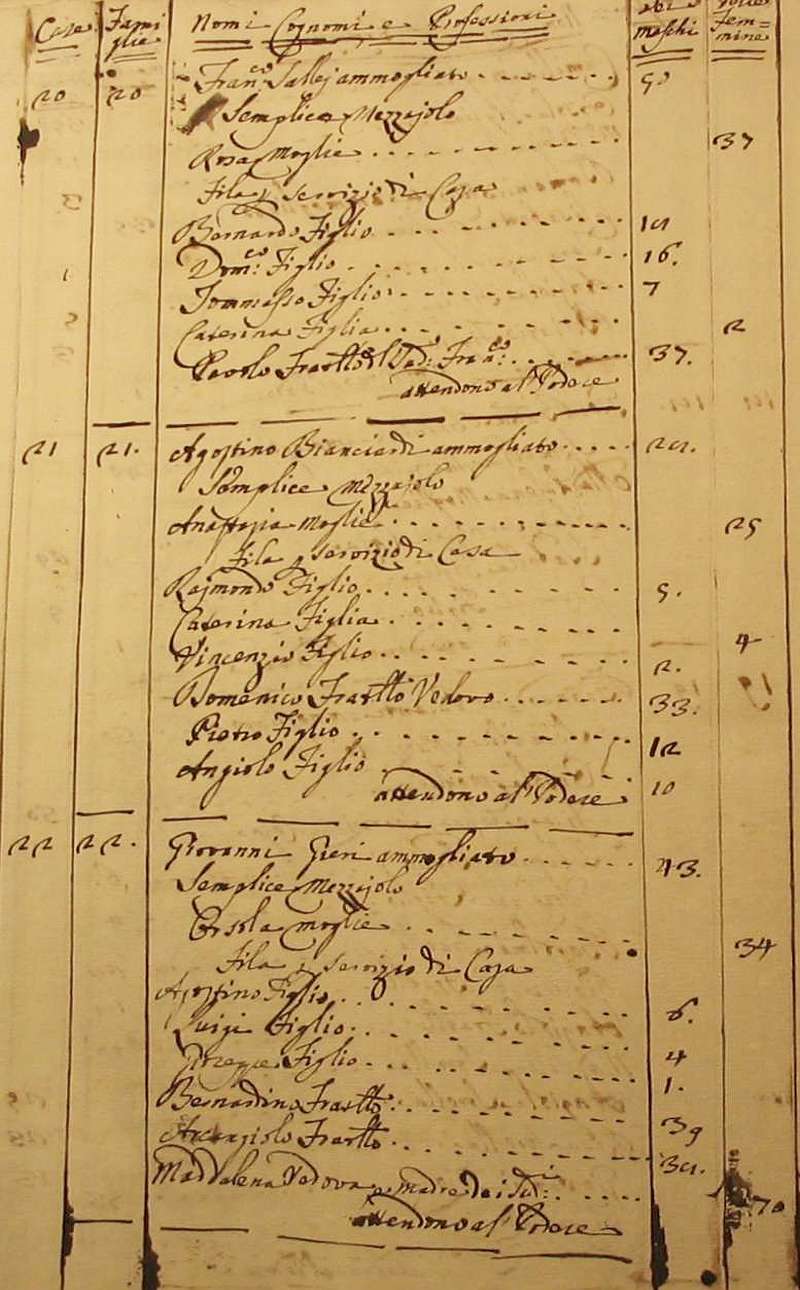 Case Fami glie Nomi Cognomi e Professioni dei maschi delle fem= mine
20 20 Fran:co Sallej ammogliato 50
Semplice Mezzajolo
Rosa Moglie 37
Fila, e servizio di Casa
Bernardo Figlio 19
Dom:co Figlio 16.
Tommasso Figlio 7
Caterina Figlia 2
Paolo Frattello del Sud: Fran:co 37.
attendono al Podere
21 21. Agostino Bianciardi ammogliato 29.
Semplice Mezzajolo
Anastasia Moglie 25
Fila, e servizio di Casa
Rajmondo Figlio 5.
Caterina Figlia 4
Vincenzio Figlio 2.
Domenico Fratello Vedovo 33.
Pietro Figlio 12
Angiolo Figlio 10
attendono al Podere
22 22. Giovanni Pieri ammogliato 43.
Semplice Mezzajolo
Orsola moglie 34
Fila, e servizio di Casa
Agostino Figlio 6.
Luigi Figlio 4
Figlio 1.
Bernardino Fratello 39
Arcangiolo Fratello 39.
Maddalena Vedova e madre dei Sud:i 70
attendono al Podere